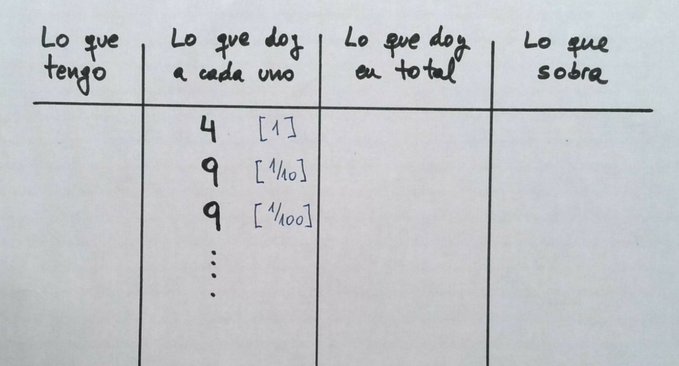 Lo que tengo
Lo que doy a cada uno
Lo que doy en total
Lo que sobra
4 [1]
9 [1/10]
9 [1/100]
⋮